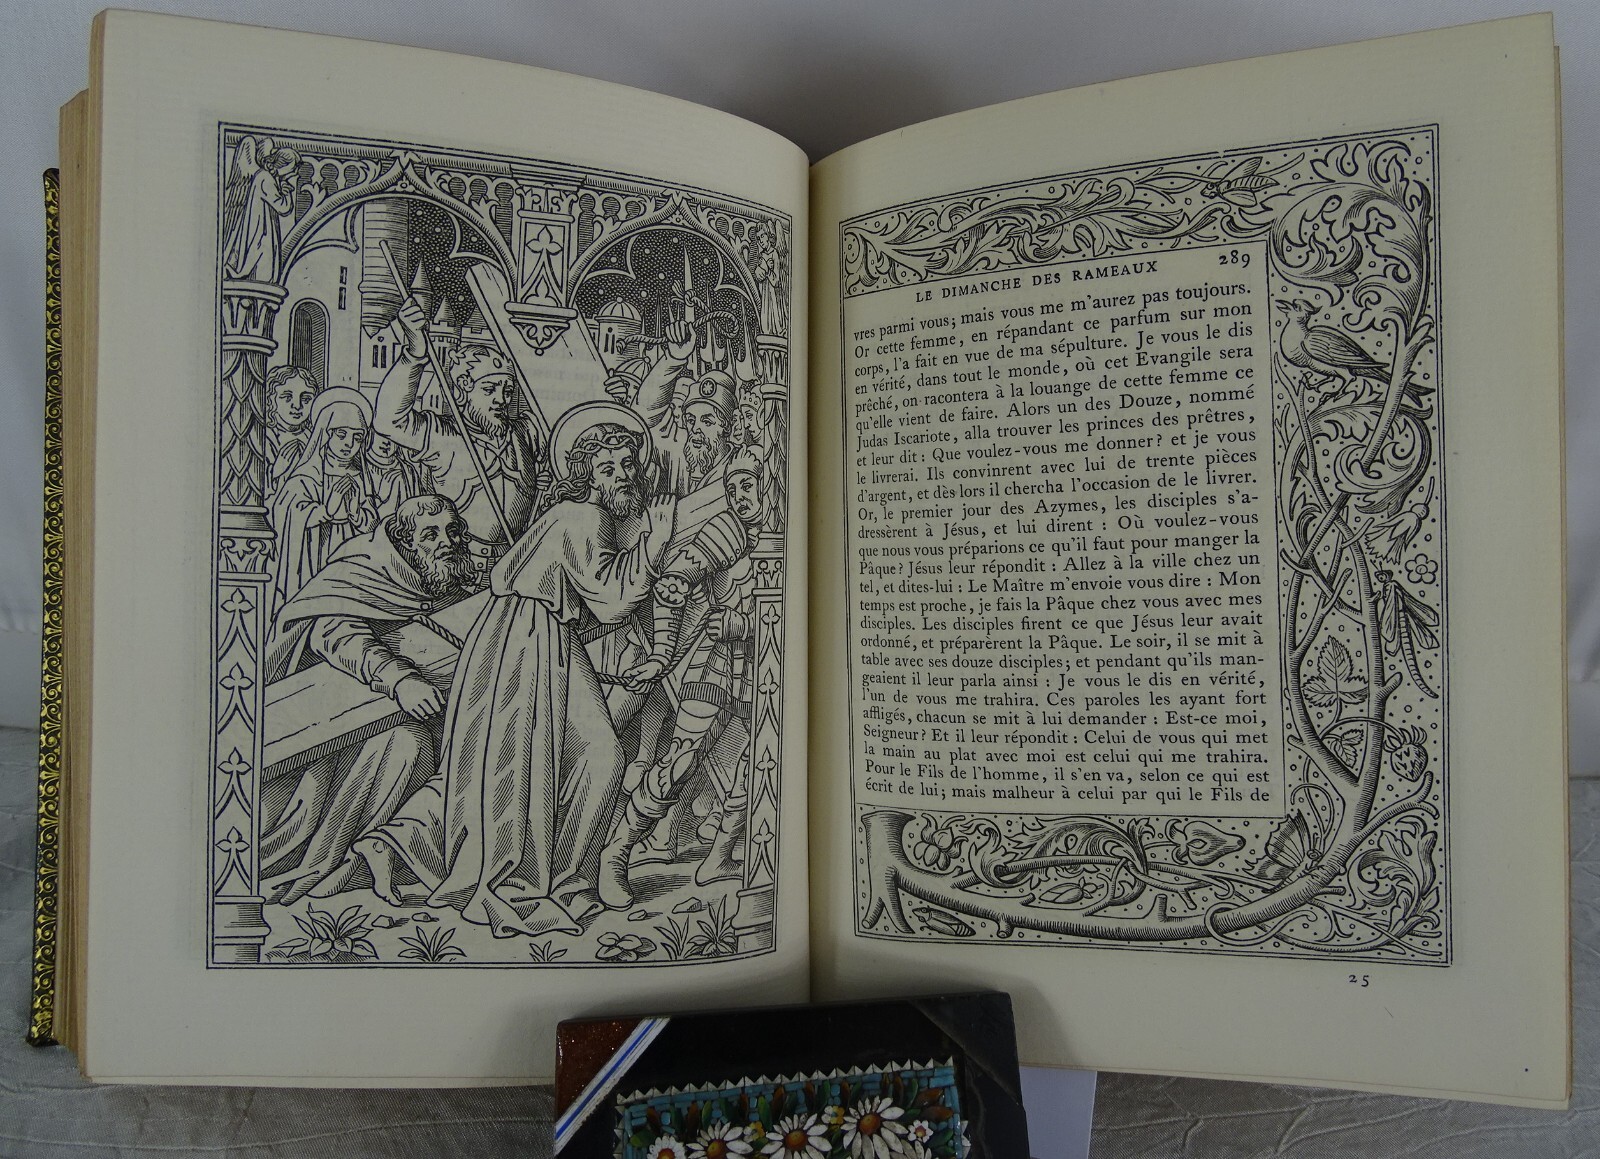 LE DIMANCHE DES RAMEAUX 289
vres parmi vous; mais vous me m'aurez pas toujours.
Or cette femme, en répandant ce parfum sur mon
corps, l'a fait en vue de ma sépulture. Je vous le dis
en vérité, dans tout le monde, où cet Evangile sera
prêché, on racontera à la louange de cette femme ce
qu'elle vient de faire. Alors un des Douze, nommé
Judas Iscariote, alla trouver les princes des prêtres,
et leur dit : Que voulez-vous me donner? et je vous
le livrerai. Ils convinrent avec lui de trente pièces
d'argent, et dès lors il chercha l'occasion de le livrer.
Or, le premier jour des Azymes, les disciples s'a-
dressèrent à Jésus, et lui dirent : Où voulez-vous
que nous vous préparions ce qu'il faut pour manger la
Pâque? Jésus leur répondit : Allez à la ville chez un
tel, et dites-lui : Le Maître m'envoie vous dire : Mon
temps est proche, je fais la Pâque chez vous avec mes
disciples. Les disciples firent ce que Jésus leur avait
ordonné, et préparèrent la Pâque. Le soir, il se mit à
table avec ses douze disciples; et pendant qu'ils man-
geaient il leur parla ainsi : Je vous le dis en vérité,
l'un de vous me trahira. Ces paroles les ayant fort
affligés, chacun se mit à lui demander : Est-ce moi,
Seigneur? Et il leur répondit : Celui de vous qui met
la main au plat avec moi est celui qui me trahira.
Pour le Fils de l'homme, il s'en va, selon ce qui est
écrit de lui; mais malheur à celui par qui le Fils de
25